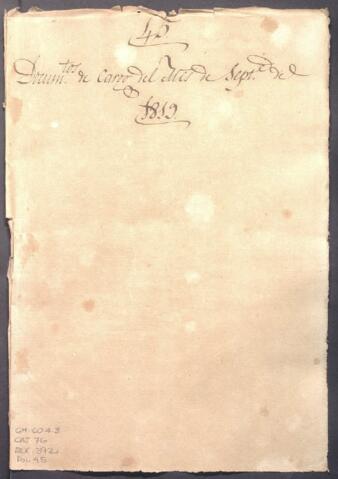 45
Docum.tos de Cargo del Mes de Sept.e del
1819
GM-CO 4.3
CAJ 76
DOC 392
Fol 45